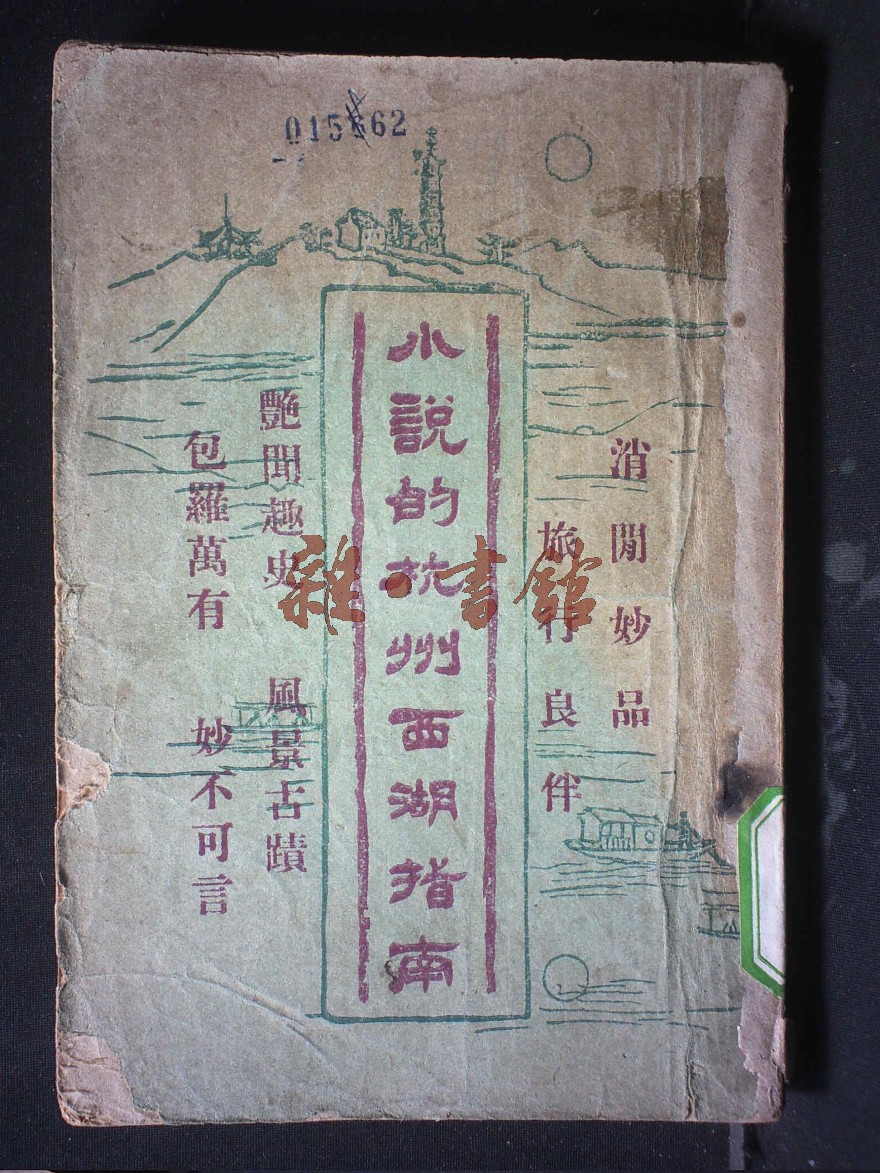 015662
消閒妙品
旅行良伴
小說的杭州西湖指南
艷聞趣史 風景古蹟
包羅萬有 妙不可言
雜·書館